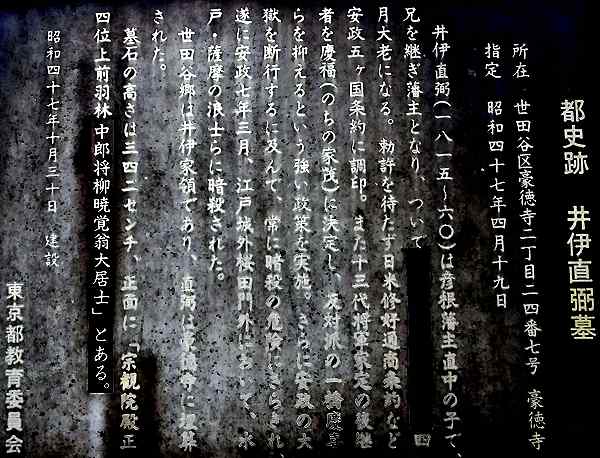 都史跡 井伊直弼墓
所在 世田谷区豪徳寺二丁目二四番七号 豪徳寺
指定 昭和四十七年四月十九日
井伊直弼(一八一五〜六〇)は彦根藩主直中の子で、
兄を継ぎ藩主となり、ついで 四
月大老になる。勅許を待たず日米修好通商条約など
安政五ヶ国条約に調印。また十三代将軍家定の後継
者を慶福(のちの家茂)に決定し、反対派の一橋慶喜
らを抑えるという強い政策を実施。さらに安政の大
獄を断行するに及んで、常に暗殺の危険にさらされ、
遂に安政七年三月、江戸城外桜田門外において、水
戸・薩摩の浪士らに暗殺された。
世田谷郷は井伊家領であり、直弼は豪徳寺に埋葬
された。
墓石の高さは三四二センチ、正面に「宗観院殿正
四位上前羽林中郎将柳暁覚翁大居士」とある。
昭和四十七年十月三十日 建設
東京都教育委員会